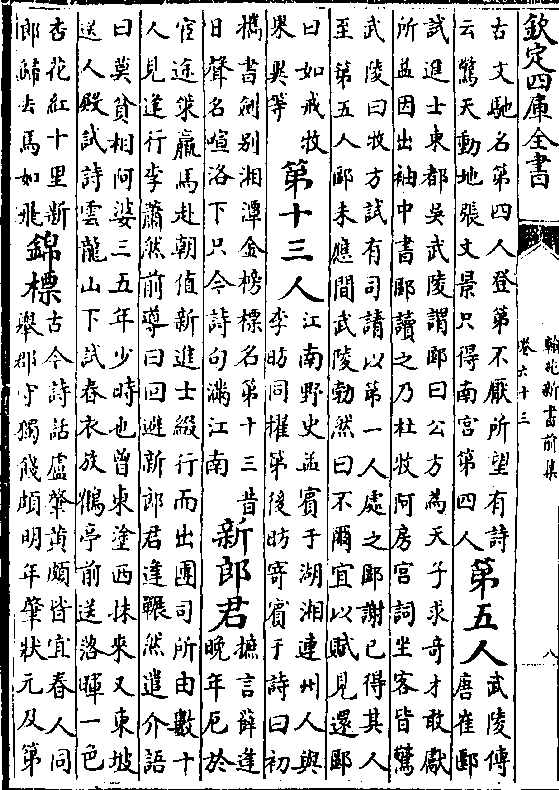 欽定四庫全書
翰苑新書前集
卷六十三
八
古文馳名第四人登第不厭所望有詩
云驚天動地張文景只得南宮第四人
第五人
武陵傳
唐崔郾
試進士東都吳武陵謂郾曰公方為天子求奇才敢獻
所益因出袖中書郾讀之乃杜牧阿房宮詞坐客皆驚
武陵曰牧方試有司請以第一人處之郾謝已得其人
至第五人郾未應間武陵勃然曰不爾宜以賦見還郾
曰如戒牧
果異等
第十三人
江南野史孟賓于湖湘連州人與
李昉同櫂第後昉寄賓于詩曰初
攜書劍別湘潭金榜標名第十三昔
日聲名喧洛下只今詩句滿江南
新郎君
摭言薛逢
晚年厄於
宦途策羸馬赴朝值新進士綴行而出團司所由數十
人見逢行李蕭然前導曰回避新郎君逢囅然遣介語
曰莫貧相阿婆三五年少時也曾東塗西抹來又東坡
送人殿試詩雲龍山下試春衣放鶴亭前送落暉一色
杏花紅十里新
郎歸去馬如飛
錦標
古今詩話盧肇黄頗皆宜春人同
舉郡守獨餞頗明年肇狀元及第